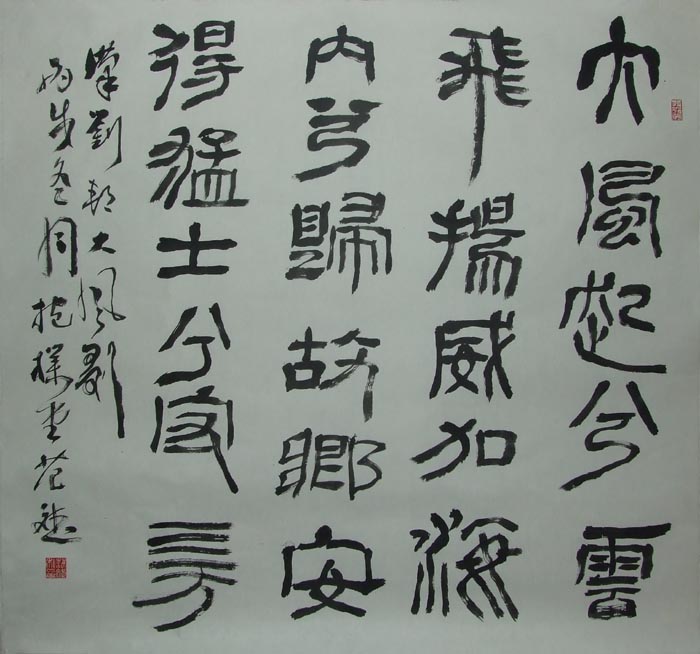 大風起兮雲
飛揚威加海
内兮歸故鄉安
得猛士兮守四方
漢劉邦大風歌
丙戌冬月抱樸堂